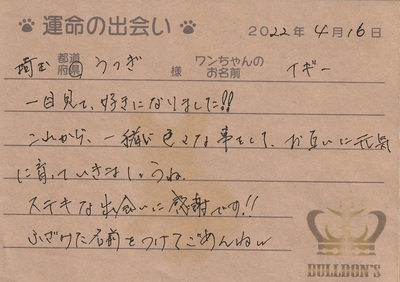 運命の出会い 2022年4月16日
埼玉 都道府県 うつぎ 様 ワンちゃんのお名前 イギー
一目見て、好きになりました!!
これから、一緒に色々な事をして、お互いに元気
に育っていきましょうね。
ステキな出会いに感謝です!!
ふざけた名前をつけてごめんねw
BULLDON'S